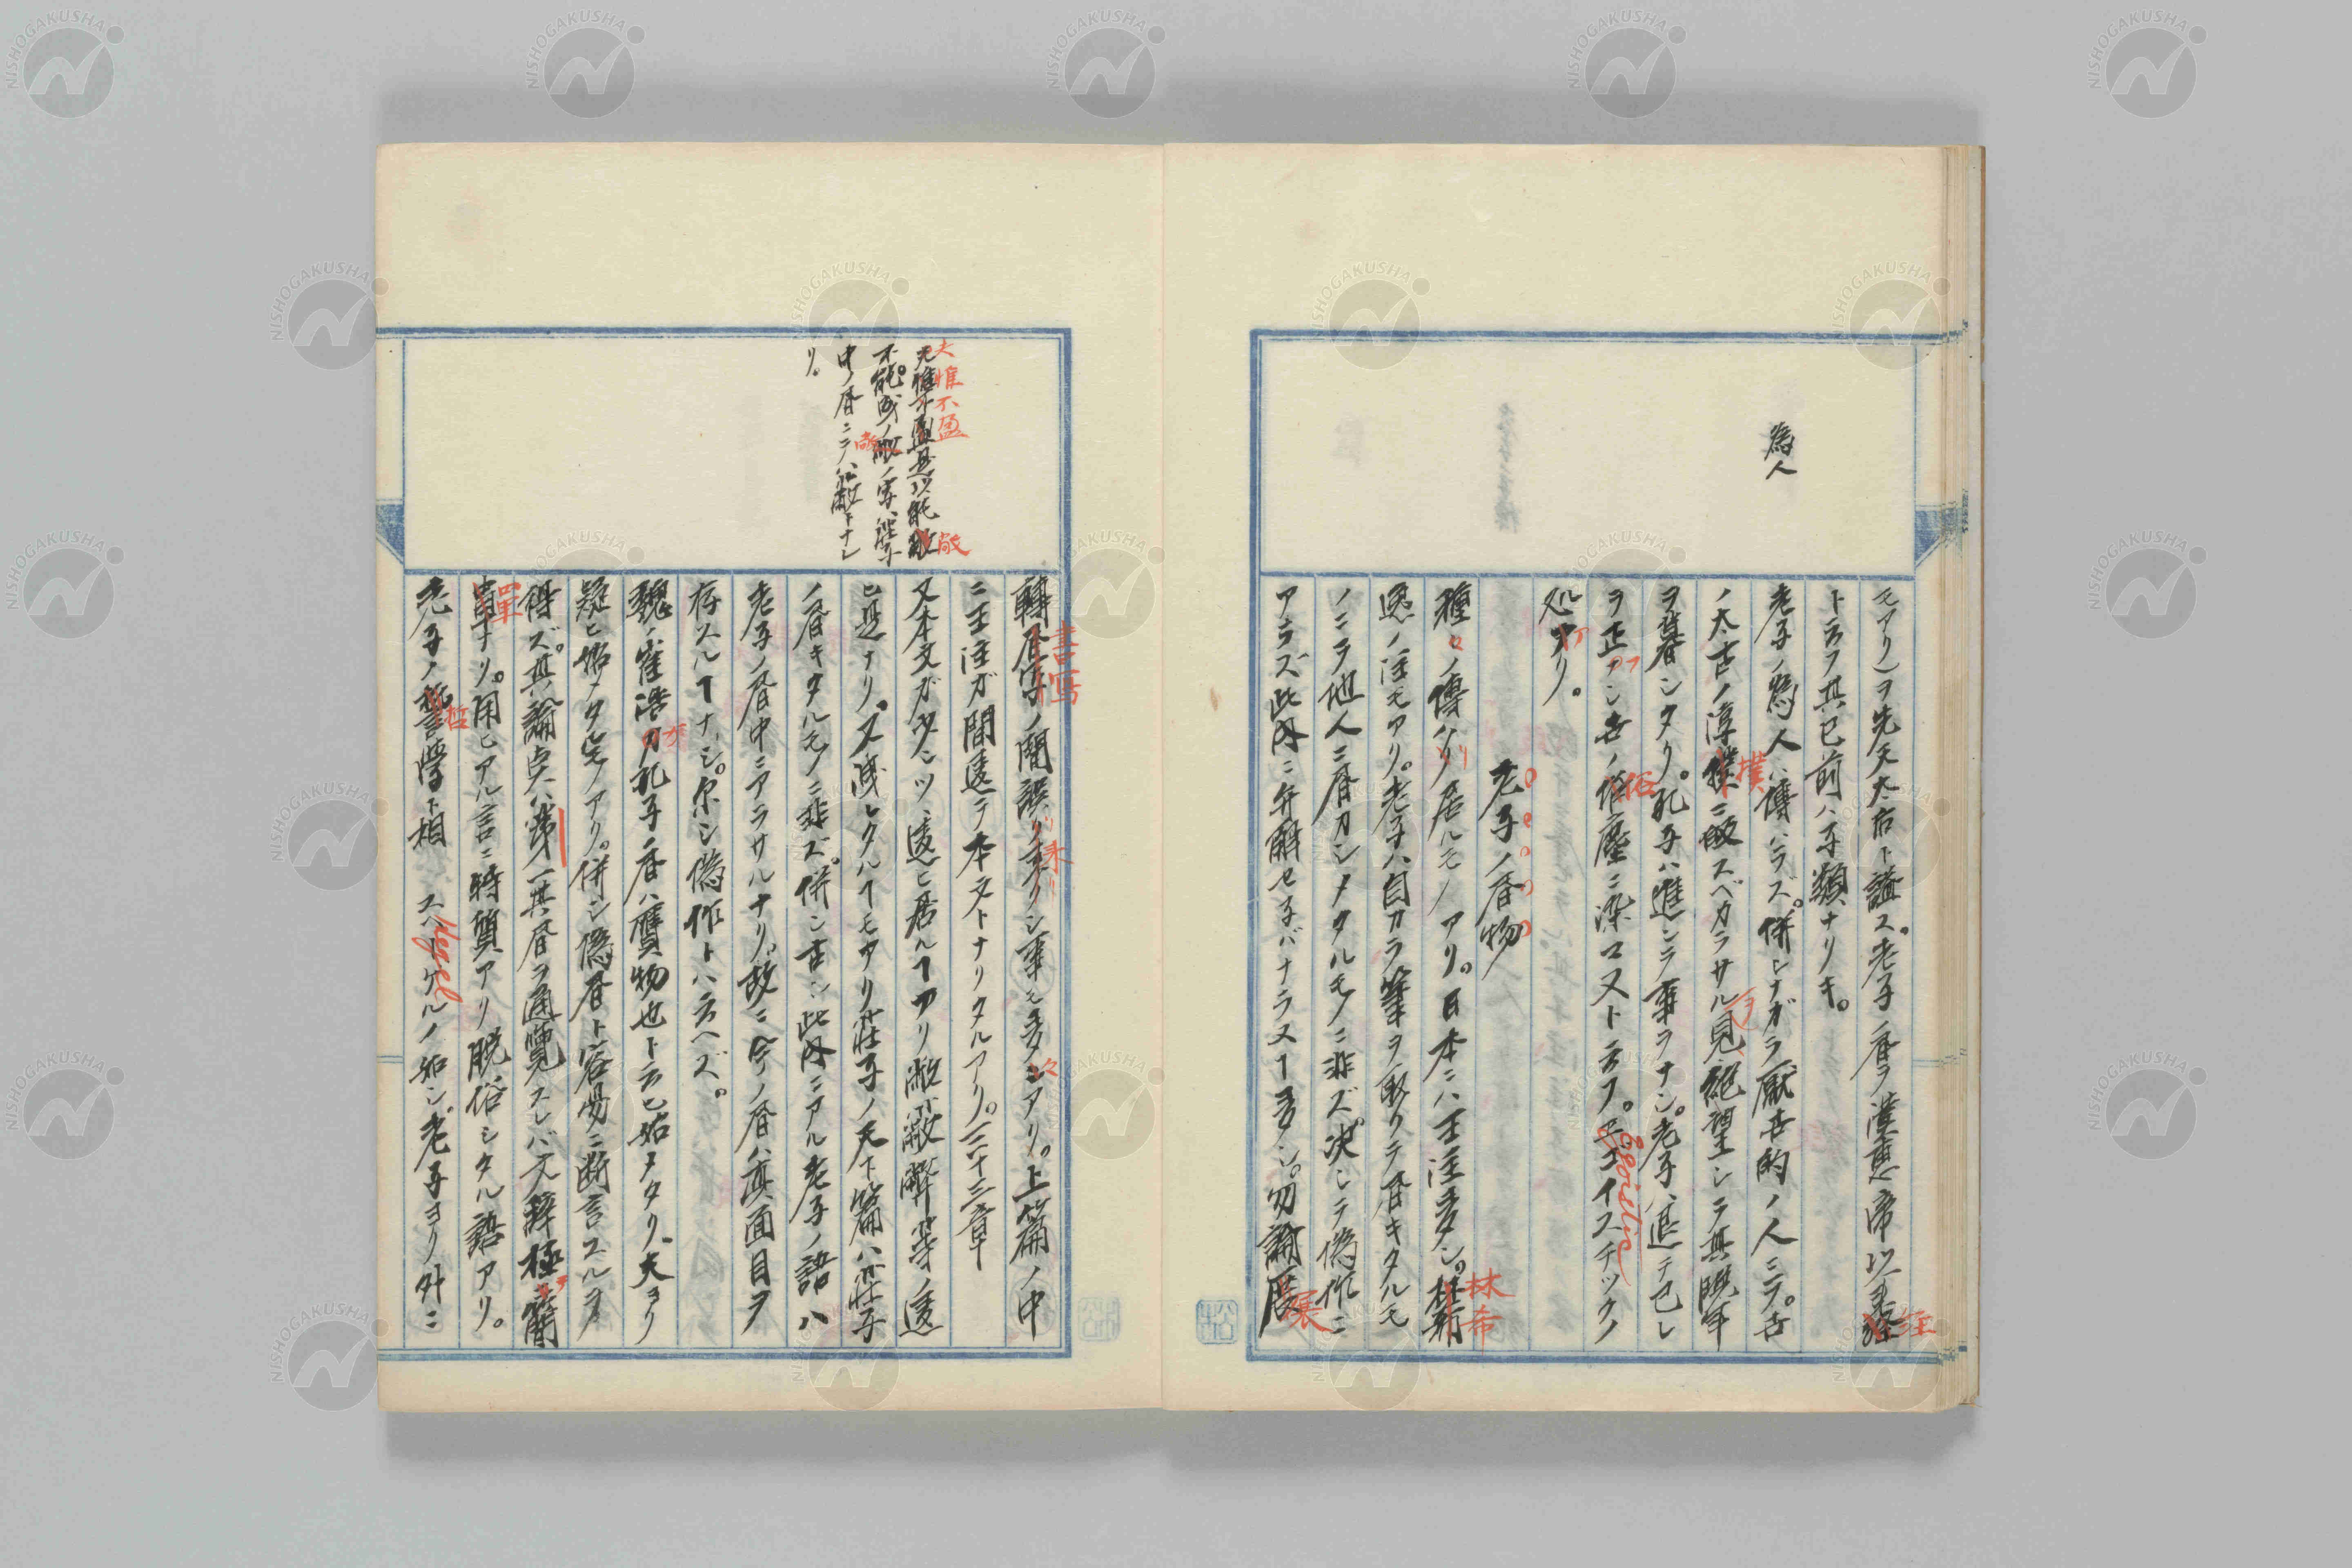 為人
モアリ)ヲ先天太古ト謚ス。老子ノ書ヲ漢惠帝以来經 経
ト云フ其已前ハ子類ナリキ。
老子ノ為人ハ傳ハラズ。併シナガラ厭世的ノ人ニテ。古
ノ太古ノ淳樸 撲 ニ皈スベカラサル ヲ 見絶望シテ其晩年
ヲ暮シタリ。孔子ハ進ンテ事ヲナシ。老子ハ退テ己レ
ヲ正フシ世ノ俗 俗 塵ニ染マヌト云フ。エゴイスチックノ Egoistic
処アリ。
老子ノ書物
種々ノ傳ハリ居ルモノアリ。日本ニハ王注多シ。林希 林希
逸ノ注モアリ。老子ハ自カラ筆ヲ取リテ書キタルモ
ノニテ他人ニ書カシメタルモノニ非ズ。决シテ偽作ニ
アラズ此内ニ弁解セネバナラヌヿ多シ。勿論展 展
大惟不盈 敞
中ノ書ニテハ敝トナレ
リ。
轉書写 書寫 ノ間誤リ来リシ事モ多クアリ。上篇ノ中
ニ王注ガ間違テ本文トナリタルアリ。三十三章
又本文ガ少シツヽ違ヒ居ルヿアリ敝蔽弊等ノ違
ヒ是ナリ。又浅レタルヿモアリ莊子ノ天下篇ハ莊子
ノ書キタルモノニ非ズ。併シ古シ此内ニアル老子ノ語ハ
老子ノ書中ニアラサルナリ。故ニ今ノ書ハ真面目ヲ
存スルヿナシ。尓シ偽作トハ云ヘズ。
魏ノ崔浩カ孔子ノ書ハ贋物也ト云ヒ始メタリ。夫ヨリ
疑ヒ始メタ宪アリ。併シ偽書ト容昜ニ断言スルヲ
得ズ。其論点ハ第一其書ヲ通覽スレバ文辞極 テ 簡
單 單 ナリ。用ヒアル言ニ特質アリ脱俗シタル語アリ。
老子ノ哲 哲 學ト相 ヘーゲルノ如シ。老子ヨリ外ニ Hegel